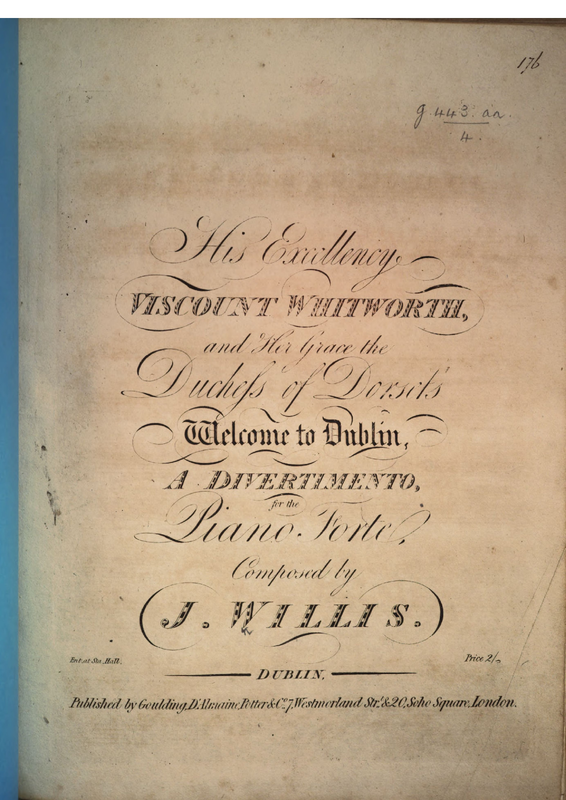 176
g. 443. aa.
4.
His Excellency
VISCOUNT WHITWORTH,
and Her Grace the
Duchess of Dorset's
Welcome to Dublin,
A DIVERTIMENTO,
for the
Piano Forte,
Composed by
J. WILLIS.
Ent. at Sta. Hall.
Price 2/-
DUBLIN,
Published by Goulding, D'Almaine, Potter & Co. 7, Westmorland Str. & 20, Soho Square, London.